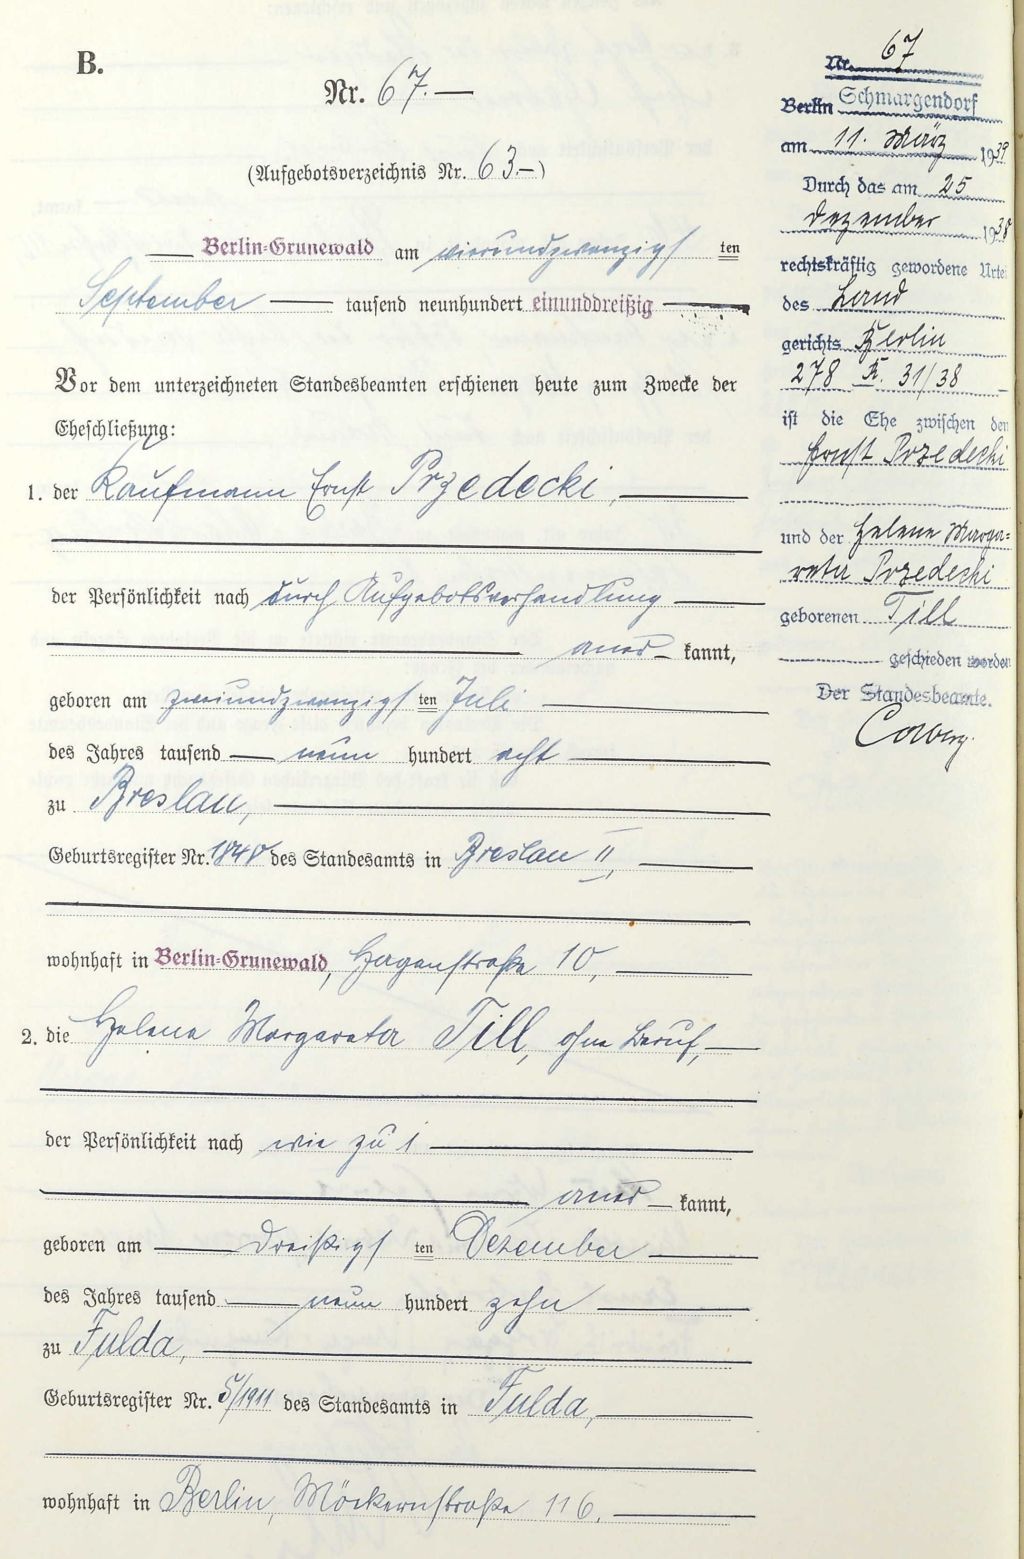 B.
Nr. 67.
(Aufgebotsverzeichnis Nr. 63.)
Berlin-Grunewald am vierundzwanzigsten
September tausend neunhundert einunddreißig
Vor dem unterzeichneten Standesbeamten erschienen heute zum Zwecke der
Eheschließung:
1. der Kaufmann Ernst Przedecki,
der Persönlichkeit nach durch Aufgebotsverhandlung
anerkannt,
geboren am zweiundzwanzigsten Juli
des Jahres tausend neun hundert acht
zu Breslau,
Geburtsregister Nr. 1840 des Standesamts in Breslau II,
wohnhaft in Berlin-Grunewald, Hagenstraße 10,
2. die Helene Margareta Till, ohne Beruf,
der Persönlichkeit nach wie zu 1
anerkannt,
geboren am dreißigsten Dezember
des Jahres tausend neun hundert zehn
zu Fulda,
Geburtsregister Nr. 5/1911 des Standesamts in Fulda,
wohnhaft in Berlin, Möckernstraße 116.
Nr. 67
Berlin Schmargendorf
am 11. März 1939
Durch das am 25
Dezember 1938
rechtskräftig gewordene Urtei
des Land
gerichts Berlin
278 R. 31/38
ist die Ehe zwischen dem
Ernst Przedecki
und der Helene Marga=
reta Przedecki
geborenen Till
geschieden worden
Der Standesbeamte.